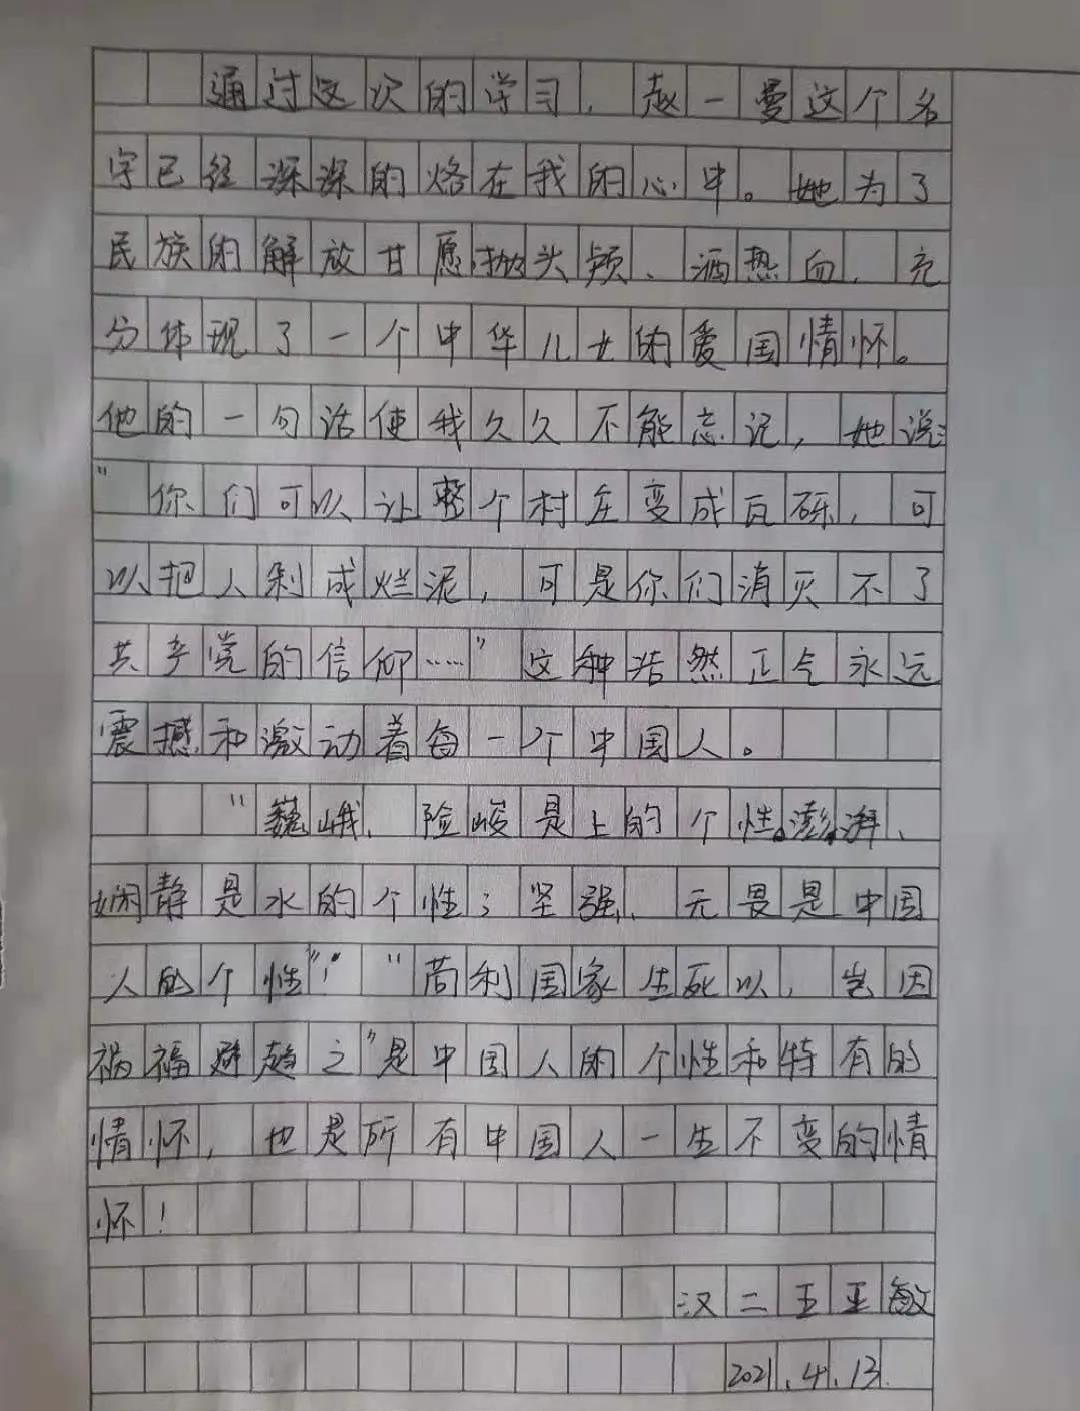 通过这次的学习，赵一曼这个名
字已经深深的烙在我的心中。她为了
民族的解放甘愿抛头颅、洒热血，充
分体现了一个中华儿女的爱国情怀。
他的一句话使我久久不能忘记，她说：
“你们可以让整个村庄变成瓦砾，可
以把人剁成烂泥，可是你们消灭不了
共产党的信仰……”这种浩然正气永远
震撼和激动着每一个中国人。
“巍峨、险峻是上的个性。澎湃、
娴静是水的个性；坚强、无畏是中国
人的个性”！“苟利国家生死以，岂因
祸福避趋之”是中国人的个性和特有的
情怀，也是所有中国人一生不变的情
怀！
汉二王亚敏
2021.4.13.